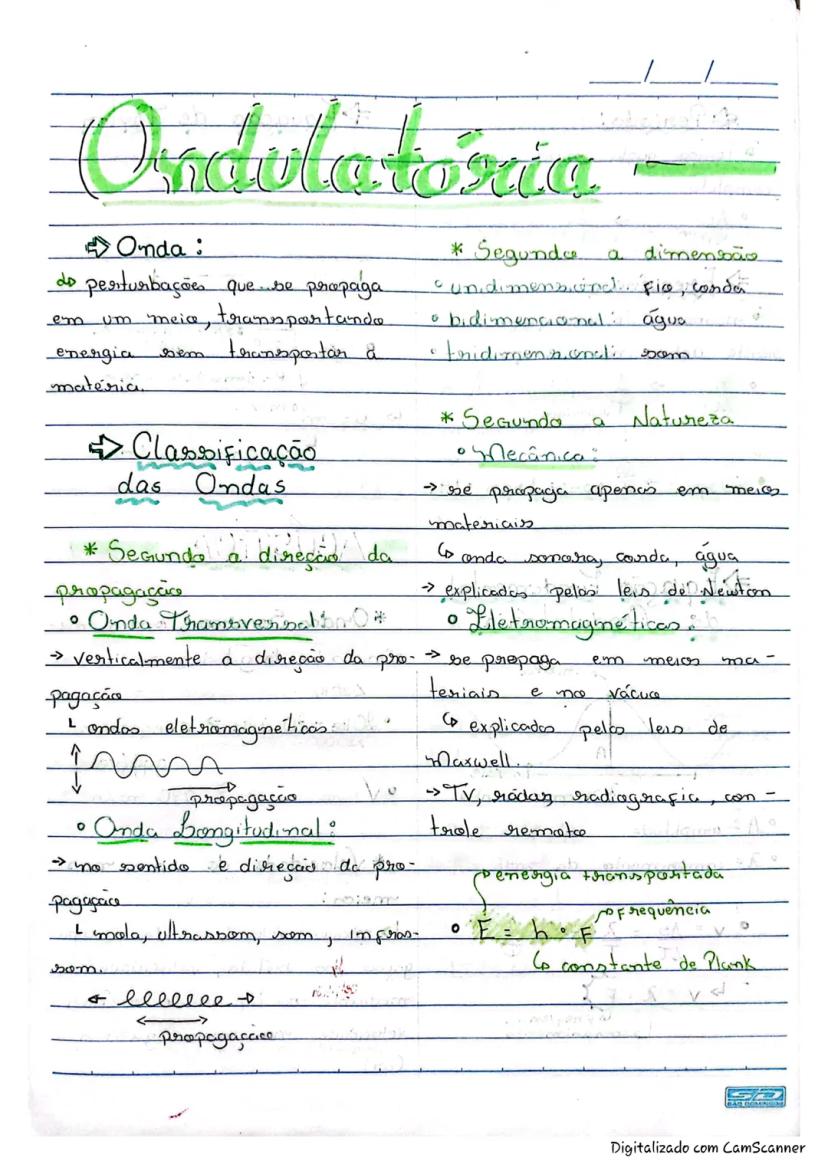 Ondulatória
⇨ Onda:
↳ perturbações que se propaga
em um meio, transportando
energia sem transportar a
matéria.
⇨ Classificação
das Ondas
* Segundo a direção da
propagação
° Onda Transversal:
→ verticalmente a direção da pro-
pagação
└ ondas eletromagnéticas
propagação
° Onda Longitudinal:
→ no sentido e direção da pro-
pagação
└ mola, ultrassom, som, infras-
som.
propagação
* Segundo a dimensão
° unidimensional: fio, corda
° bidimencional: água
° tridimensional: som
* Segundo a Natureza
° Mecânica:
→ se propaga apenas em meios
materiais
↳ onda sonora, corda, água
→ explicadas pelas leis de Newton
° Eletromagnéticas:
→ se propaga em meios ma-
teriais e no vácuo
↳ explicadas pelas leis de
Maxwell.
→ TV, radar, radiografia, con-
trole remoto
energia transportada
frequência
° E = h · F
↳ constante de Plank
SD
SÃO DOMINGOS
Digitalizado com CamScanner